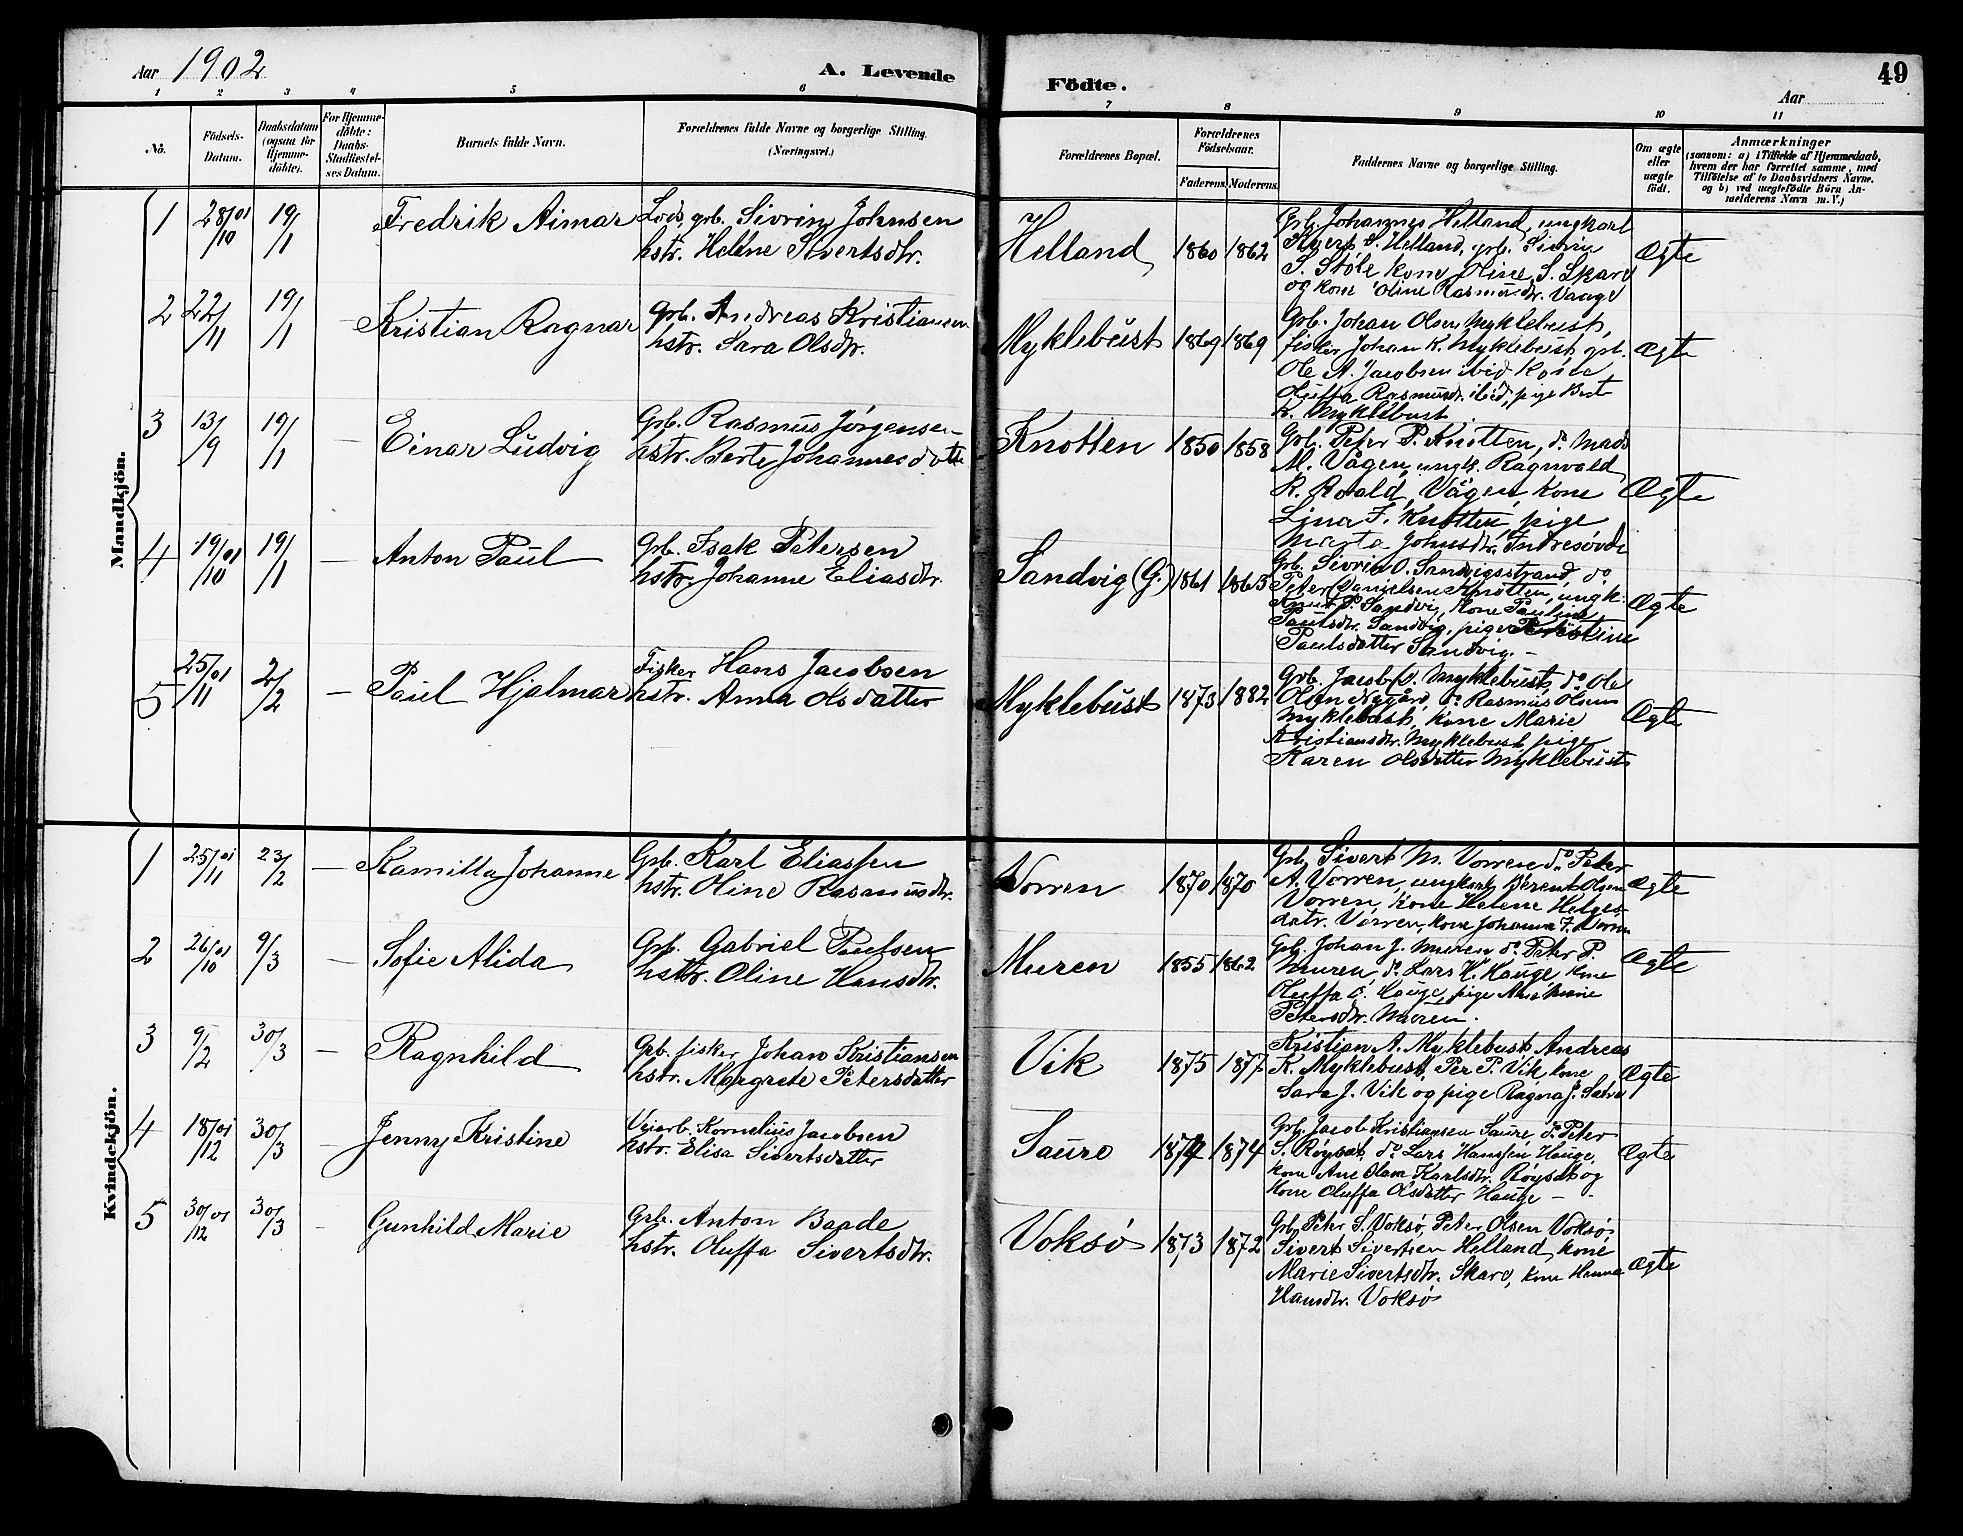 Aar 1902
A. Levende
1 2 3 4 5 6
No.
Födsels-
Datum.
Daabsdatum
(ogsaa for
Hjemme-
döbte).
For Hjemme-
döbte:
Daabs-
Stadfæstel-
ses Datum.
Barnets fulde Navn.
Forældrenes fulde Navne og borgerlige Stilling.
(Næringsvei.)
Mandkjön.
1 28/10 01 19/1 Fredrik Aimar
Lods, grb. Sivrin Johnsen
hstr. Helene Sivertsdtr.
2 22/11 19/1 Kristian Ragnar
Grb. Andreas Kristiansen
hstr. Sara Olsdtr.
3 13/9 19/1 — Einar Ludvig
Grb. Rasmus Jørgensen
hstr. Berte Johannesdotte
4 19/10 01 19/1 — Anton Paul
Grb. Isak Petersen
hstr. Johanne Eliasdtr.
5 25/11 01 2/2 — Paul Hjalmar
Fisker Hans Jacobsen
hstr. Anna Olsdatter
Kvindekjön.
1 25/11 01 23/2 — Kamilla Johanne
Grb. Karl Eliassen
hstr. Oline Rasmusdtr.
2 26/10 01 9/3 — Sofie Alida
Grb. Gabriel Paulsen
hstr. Oline Hansdtr.
3 9/2 30/3 — Ragnhild
Grb. fisker Johan Kristiansen
hstr. Margrete Petersdatter
4 18/12 01 30/3 — Jenny Kristine
Veiarb. Kornelius Jacobsen
hstr. Elisa Sivertsdatter
5 30/12 01 30/3 — Gunhild Marie
Grb. Anton Baade
hstr. Oluffa Sivertsdtr.
Födte.
49
Aar
7 8 9 10 11
Forældrenes Bopæl.
Forældrenes
Födselsaar.
Faderens. Moderens.
Faddernes Navne og borgerlige Stilling.
Om ægte
eller
uægte
födt.
Anmærkninger
(saasom: a) i Tilfælde af Hjemmedaab,
hvem der har forrettet samme, med
Tilföielse af to Daabsvidners Navne.
og b) ved uægtefödte Börn An-
melderens Navn m.V.)
Helland 1860 1862
Grb. Johannes Helland, ungkarl
Sivert S. Helland, grb. Sivrin
S. Støle kone Oline S. Skare
og kone Oline Rasmusdr. Vaage
Ægte
Myklebust 1869 1869
Grb. Johan Olsen Myklebust,
fisker Johan K. Myklebust, grb.
Ole A. Jacobsen ibid kone
Oluffa Rasmusd. ibid, pige Berte
K. Myklebust
Ægte
Knotten 1850 1858
Grb. Peter P. Knotten, do Mads
M. Vågen, ungk. Ragnvald
R. Roald, Vågen, kone
Lina J. Knotten, pige
Marta Johnsdtr.
Ægte
Sandvig (G.) 1861 1865
Grb. Sivrin O. Sandvigsstrand, do
Peter Danjelsen Knotten, ungk.
Knut P. Sandvig, kone Pauline
Paulsdtr. Sandvig, pige Kristine
Paulsdatter Sandvig. —
Ægte
Myklebust 1873 1882
Grb. Jacob O. Myklebust, do Ole
Olsen Nygård, do Rasmus Olsen
Myklebust, kone Marie
Kristiansdtr. Myklebust, pige
Karen Olsdatter Myklebust
Ægte
Vorren 1870 1870
Grb. Sivert M. Vorren do Peter
A. Vorren, ungkarl Berent Olsen
Vorren, kone Helene Helges-
datr. Vorren, kone Johanna J. Vorren
Ægte
Muren 1855 1862
Grb. Johan J. Muren do Peter P.
Muren, do Lars H. Hauge, kone
Oluffa O. Hauge, pige
Petersdtr. Muren.
Ægte
Vik 1875 1877
Kristian A. Myklebust, Andreas
K. Myklebust, Per P. Vik, kone
Sara J. Vik og pige Ragna J.
Ægte
Saure 1874 1874
Grb. Jacob Kristiansen Saure, do Peter
S. Røyset, do Lars Hanssen Hauge,
kone Ane Olava Karlsdtr. Røyset og
kone Oluffa Olsdatter Hauge —
Ægte
Voksø 1873 1872
Grb. Peter S. Voksø, Peter Olsen Voksø,
Sivert Sivertsen Helland, kone
Marie Sivertsdtr. Skare, kone Hanna
Hansdtr. Voksø
Ægte